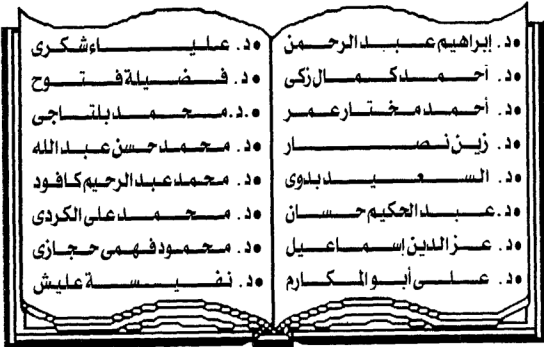 • د. إبراهيم عبد الرحمن
• د. أحمد كمال زكى
• د. أحمد مختار عمر
• د. زين نصار
• د. السعيد بدوى
• د. عبد الحكيم حسان
• د. عز الدين إسماعيل
• د. على أبو المكارم
• د. علياء شكرى
• د. فضيلة فتوح
• د. محمد بلتاجى
• د. محمد حسن عبد الله
• د. محمد عبد الرحيم كافود
• د. محمد على الكردى
• د. محمود فهمى حجازى
• د. نفيسة عليش